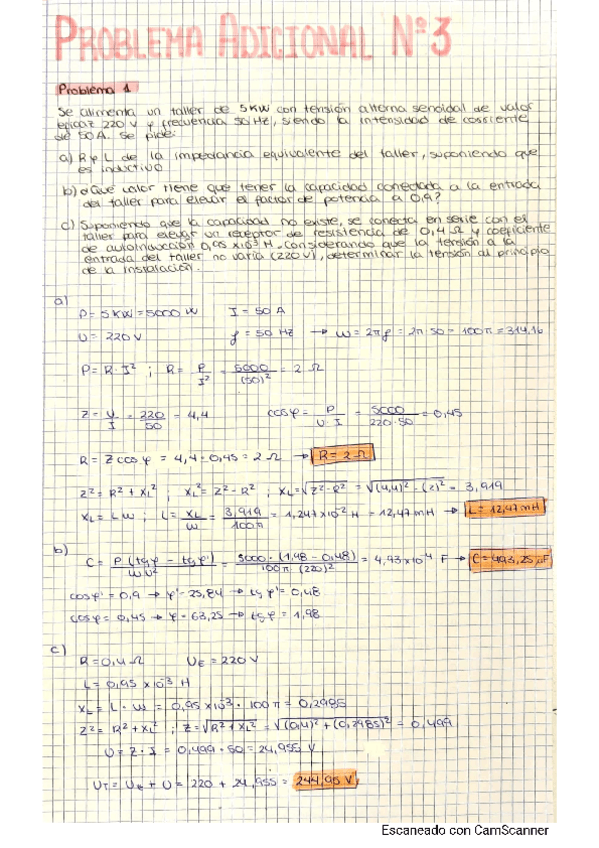 PROBLEMA ADICIONAL Nº3
Problema 1
Se alimenta un taller de 5KW con tensión alterna senoidal de valor
eficaz 220 V y frecuencia 50 Hz, siendo la intensidad de corriente
de 50A. Se pide:
a) R y L de la impedancia equivalente del taller, suponiendo que
es inductivo
b) ¿Qué valor tiene que tener la capacidad conectada a la entrada
del taller para elevar el factor de potencia a 0,9?
c) Suponiendo que la capacidad no existe, se conecta en serie con el
taller para elevar un receptor de resistencia de 0,4 Ω y coeficiente
de autoinducción 0,95 x10⁻³ H. Considerando que la tensión a la
entrada del taller no varía (220 V), determinar la tensión al principio
de la instalación.
a)
P = 5 KW = 5000 W I = 50 A
U = 220 V f = 50 Hz → w = 2πf = 2π · 50 = 100π = 314,16
P = R · I² ; R = P / I² = 5000 / (50)² = 2 Ω
Z = U / I = 220 / 50 = 4,4 cosφ = P / U · I = 5000 / 220 · 50 = 0,45
R = Z cosφ = 4,4 · 0,45 = 2 Ω → R = 2 Ω
Z² = R² + XL² ; XL² = Z² - R² ; XL = √Z² - R² = √(4,4)² - (2)² = 3,919
XL = L w ; L = XL / w = 3,919 / 100π = 1,247 x10⁻² H = 12,47 mH → L = 12,47 mH
b)
C = P (tgφ - tgφ') / w U² = 5000 · (1,98 - 0,48) / 100π · (220)² = 4,93 x10⁻⁴ F → C = 493,25 μF
cosφ' = 0,9 → φ' = 25,84 → tgφ' = 0,48
cosφ = 0,45 → φ = 63,25 → tgφ = 1,98
c)
R = 0,4 Ω UE = 220 V
L = 0,95 x10⁻³ H
XL = L · w = 0,95 x10⁻³ · 100π = 0,2985
Z² = R² + XL² ; Z = √R² + XL² = √(0,4)² + (0,2985)² = 0,499
U = Z · I = 0,499 · 50 = 24,955 V
UT = UE + U = 220 + 24,955 = 244,95 V
Escaneado con CamScanner